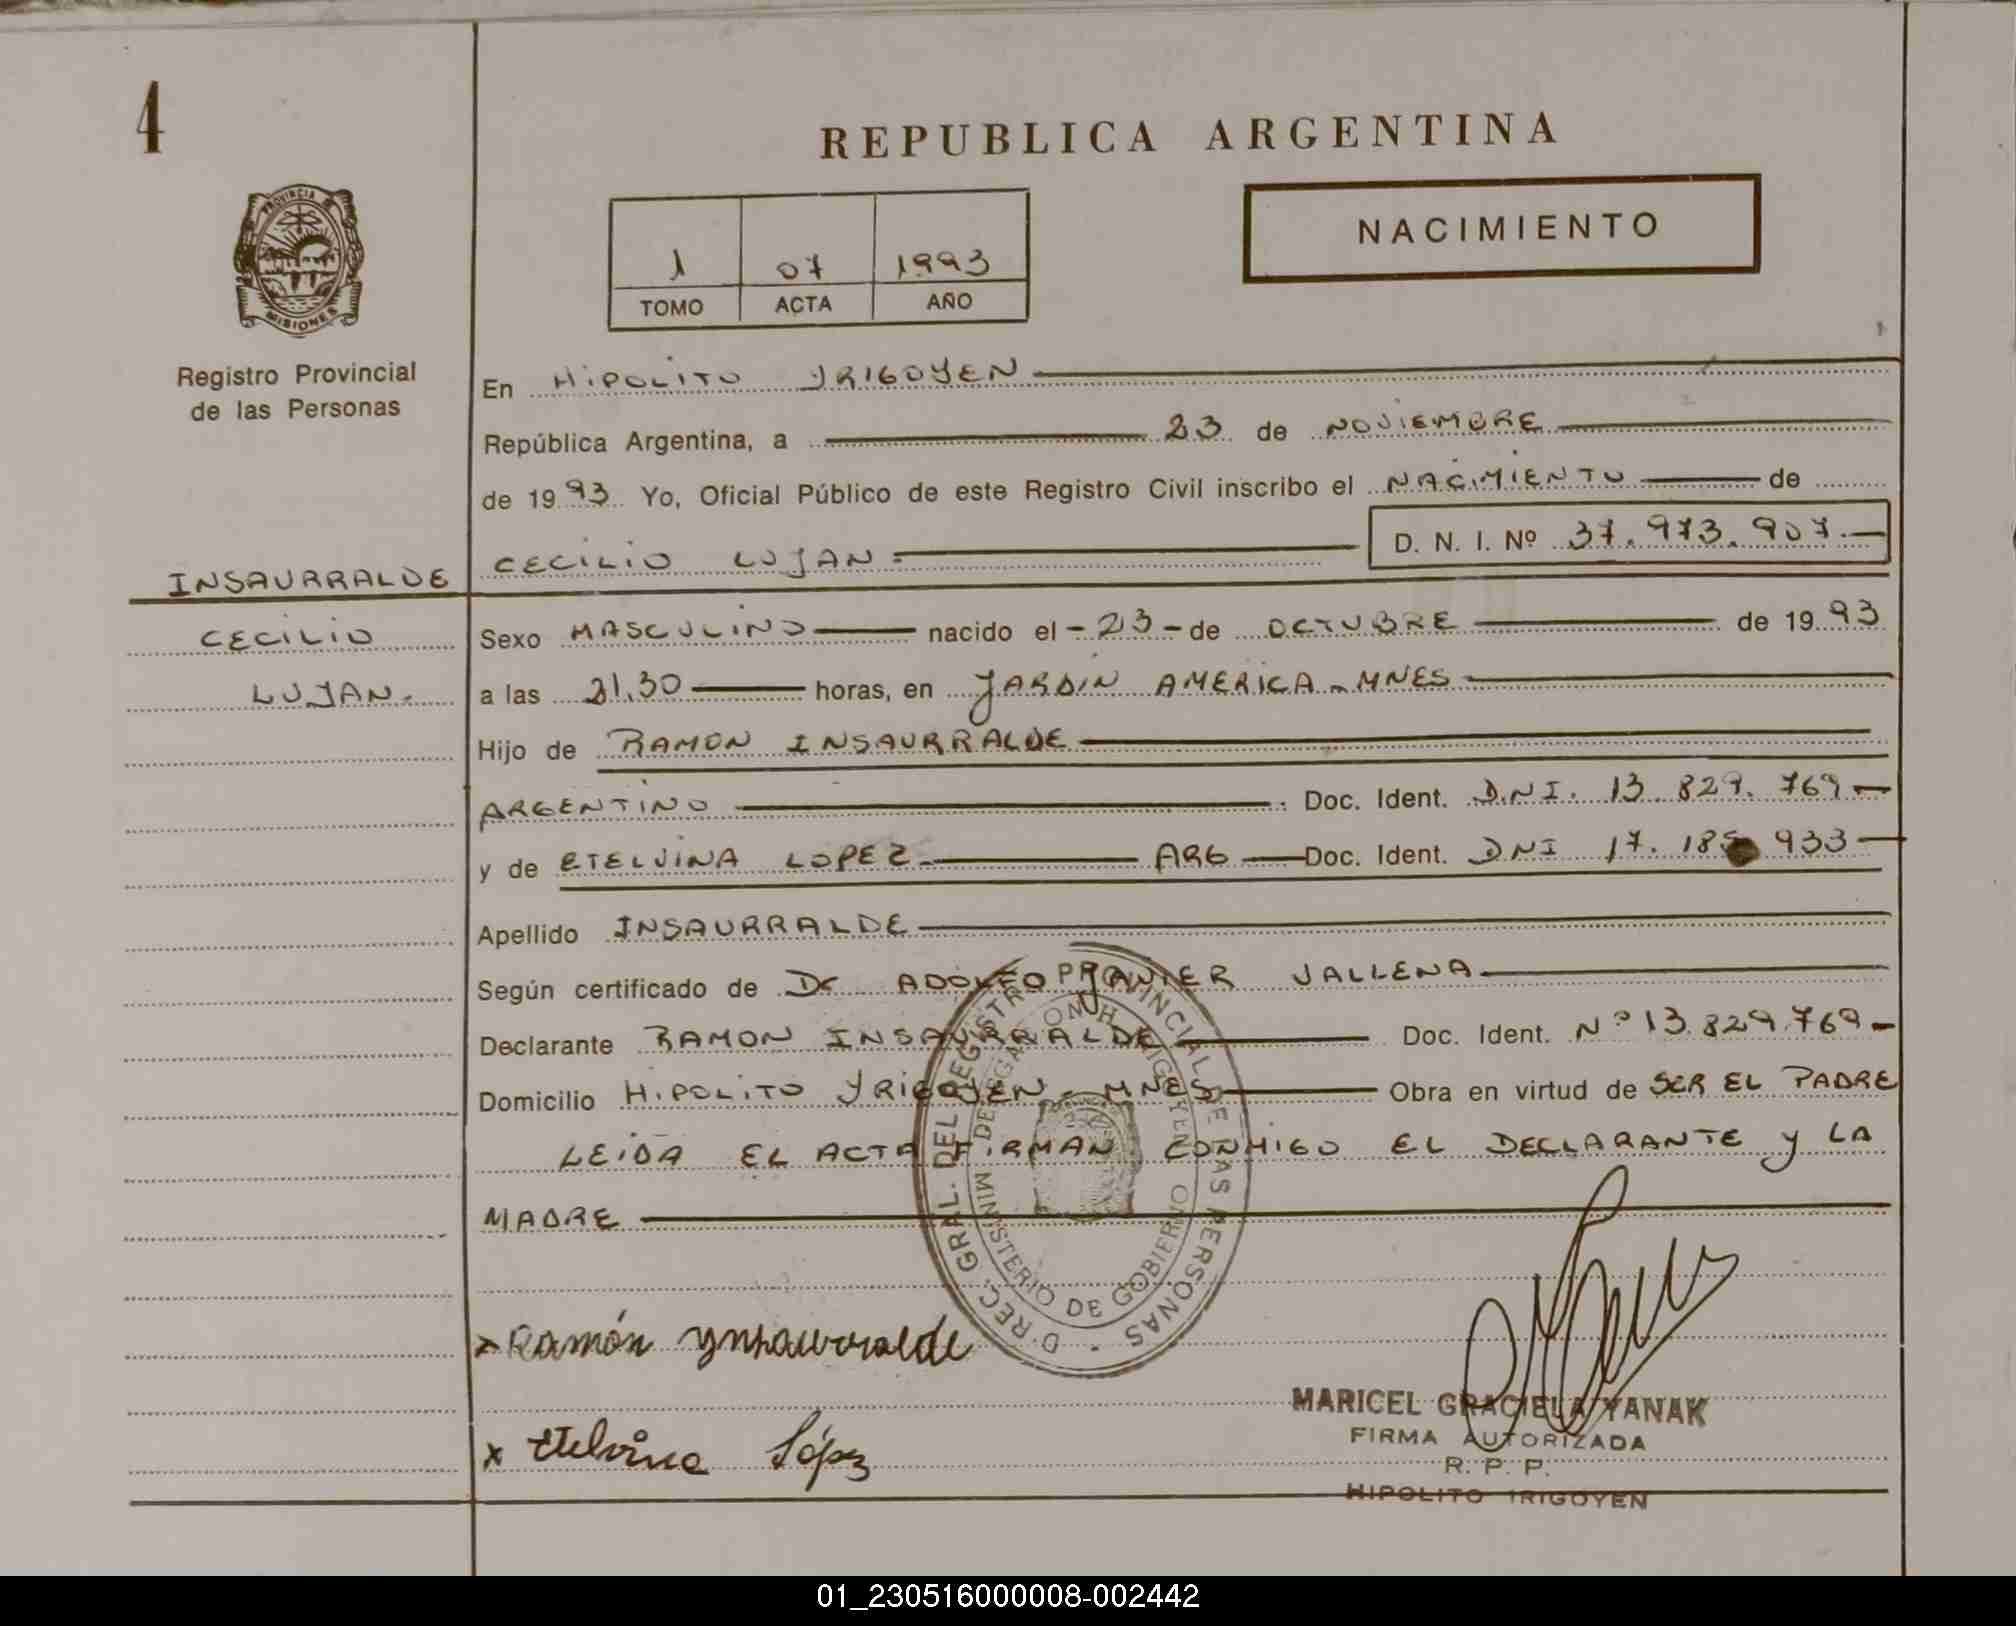 4
REPUBLICA ARGENTINA
NACIMIENTO
1 07 1993
TOMO ACTA AÑO
PROVINCIA DE
MISIONES
Registro Provincial
de las Personas
En HIPOLITO YRIGOYEN
República Argentina, a 23 de NOVIEMBRE
de 1993 Yo, Oficial Público de este Registro Civil inscribo el NACIMIENTO de
D. N. I. Nº 37.973.907.-
INSAURRALDE CECILIO LUJAN.
CECILIO Sexo MASCULINO nacido el -23- de OCTUBRE de 1993
LUJAN. a las 21.30 horas, en JARDIN AMERICA - MNES
Hijo de RAMON INSAURRALDE
ARGENTINO Doc. Ident. DNI. 13.829.769-
y de ETELVINA LOPEZ ARG Doc. Ident. DNI 17. 933
Apellido INSAURRALDE
Según certificado de Dr ADOLFO JAVIER VALLENA
Declarante RAMON INSAURRALDE Doc. Ident. Nº 13.829.769-
Domicilio HIPOLITO YRIGOYEN - MNES Obra en virtud de SER EL PADRE
LEIDA EL ACTA FIRMAN CONMIGO EL DECLARANTE Y LA
MADRE
DIREC. GRAL. DEL REGISTRO PROVINCIAL DE LAS PERSONAS
MINISTERIO DE GOBIERNO
x Ramón Ynsaurralde
x Etelvina López
MARICEL GRACIELA YANAK
FIRMA AUTORIZADA
R. P. P.
HIPOLITO IRIGOYEN
01_230516000008-002442